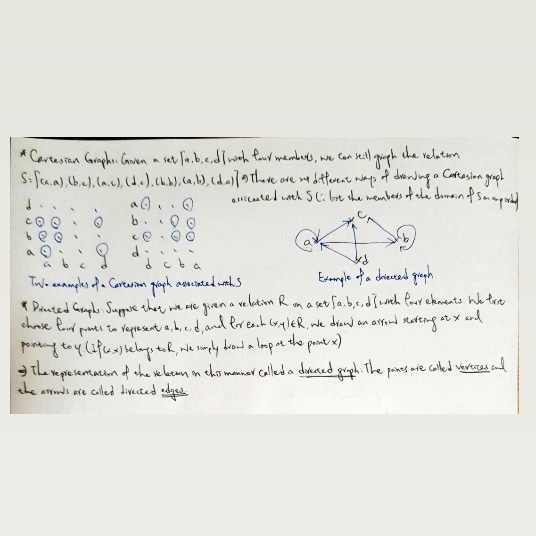 * Cartesian Graphs: Given a set {a,b,c,d} with four members, we can still graph the relation
S={(a,a),(b,c),(a,c),(d,c),(b,b),(a,b),(d,a)} ⇒ There are different ways of drawing a Cartesian graph
associated with S (: list the members of the domain of S in any order)
d . . . .
c . . . .
b . . . .
a . . . .
a b c d
a . . . .
b . . . .
c . . . .
d . . . .
d c b a
a c b d
Two examples of a Cartesian graph associated with S
Example of a directed graph
* Directed Graphs: Suppose that we are given a relation R on a set {a,b,c,d} with four elements. We first
choose four points to represent a,b,c,d, and for each (x,y)∈R, we draw an arrow starting at x and
pointing to y (if (x,x) belongs to R, we simply draw a loop at the point x)
⇒ The representation of the relation in this manner called a directed graph. The points are called vertices and
the arrows are called directed edges.